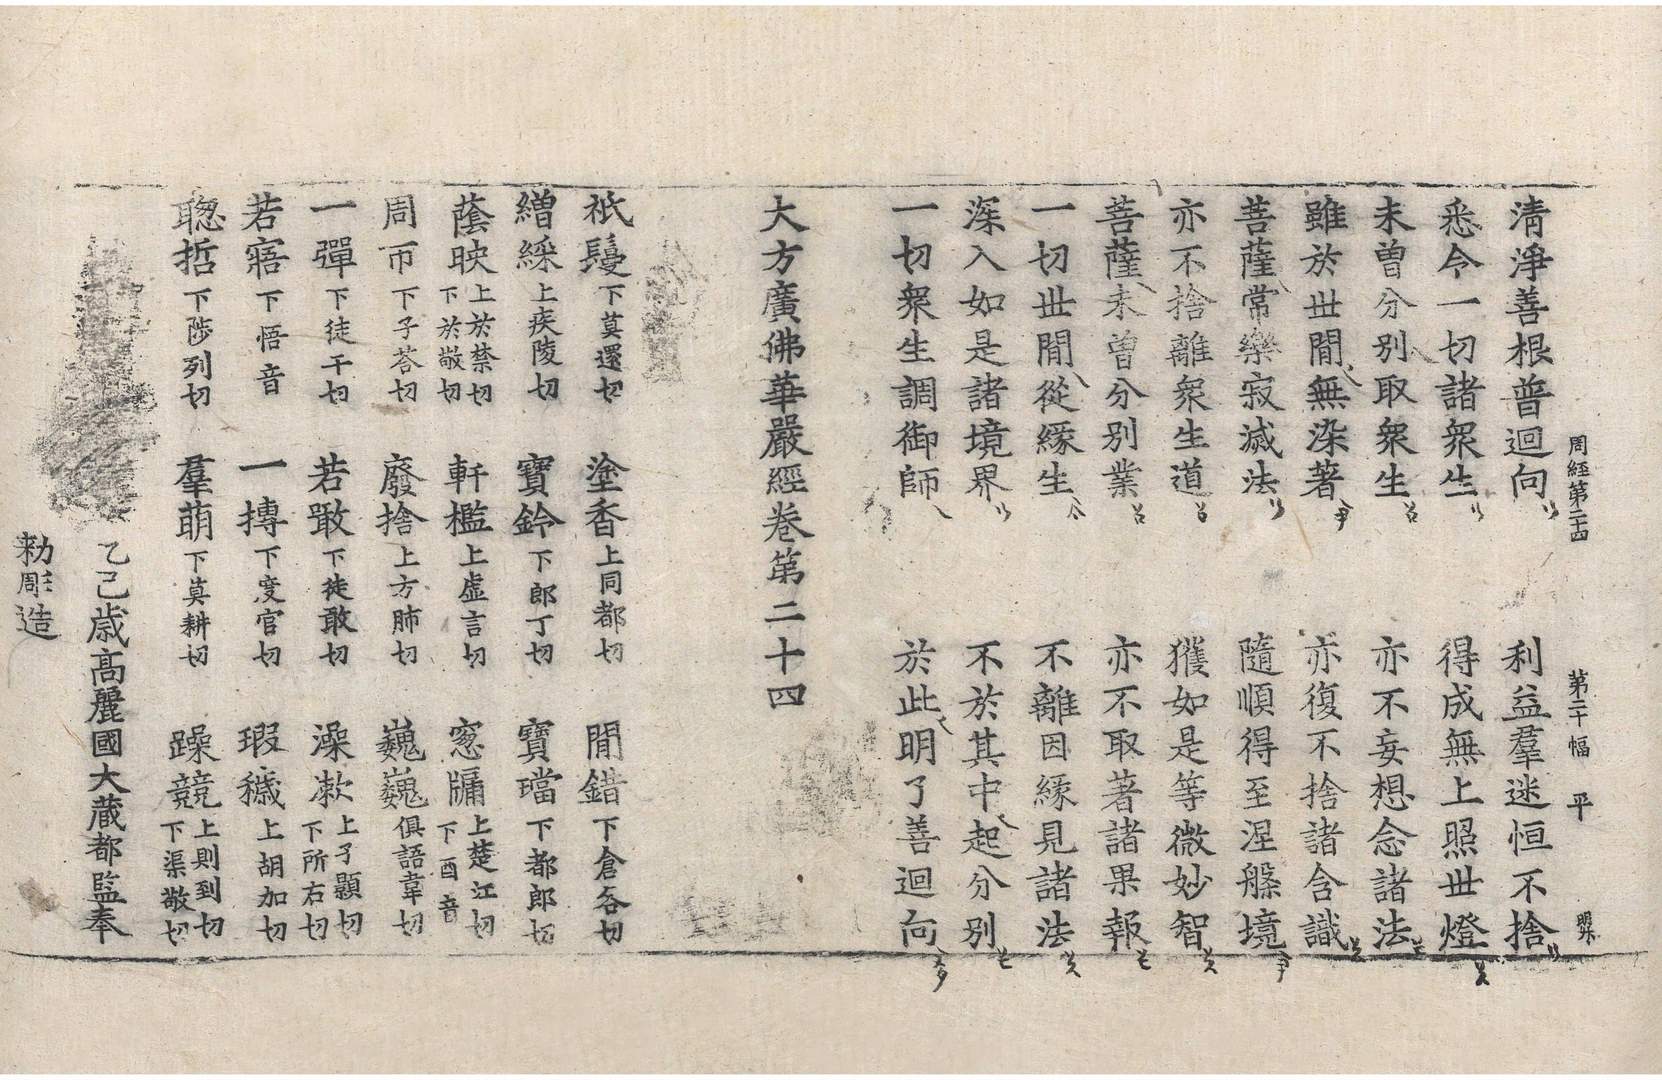 周經第二十四 第二十幅 平
清淨善根普迴向 利益羣迷恒不捨
悉令一切諸衆生 得成無上照世燈
未曽分别取衆生 亦不妄想念諸法
雖於世閒無染著 亦復不捨諸含識
菩薩常樂寂滅法 隨順得至涅槃境
亦不捨離衆生道 獲如是等微妙智
菩薩未曽分别業 亦不取著諸果報
一切世閒從緣生 不離因緣見諸法
深入如是諸境界 不於其中起分别
一切衆生調御師 於此明了善迴向
大方廣佛華嚴經卷第二十四
祇鬘下莫還切 塗香上同都切 閒錯下倉各切
繒綵上疾陵切 寶鈴下郎丁切 寶璫下都郎切
蔭映上於禁切下於敬切 軒檻上虛言切 窓牖上楚江切下酉音
周帀下子荅切 廢捨上方肺切 巍巍俱語韋切
一彈下徒干切 若噉下徒敢切 澡漱上子顥切下所右切
若寤下悟音 一摶下度官切 瑕穢上胡加切
聦哲下陟列切 羣萌下莫耕切 躁競上則到切下渠敬切
乙巳歳高麗國大藏都監奉
勅雕造